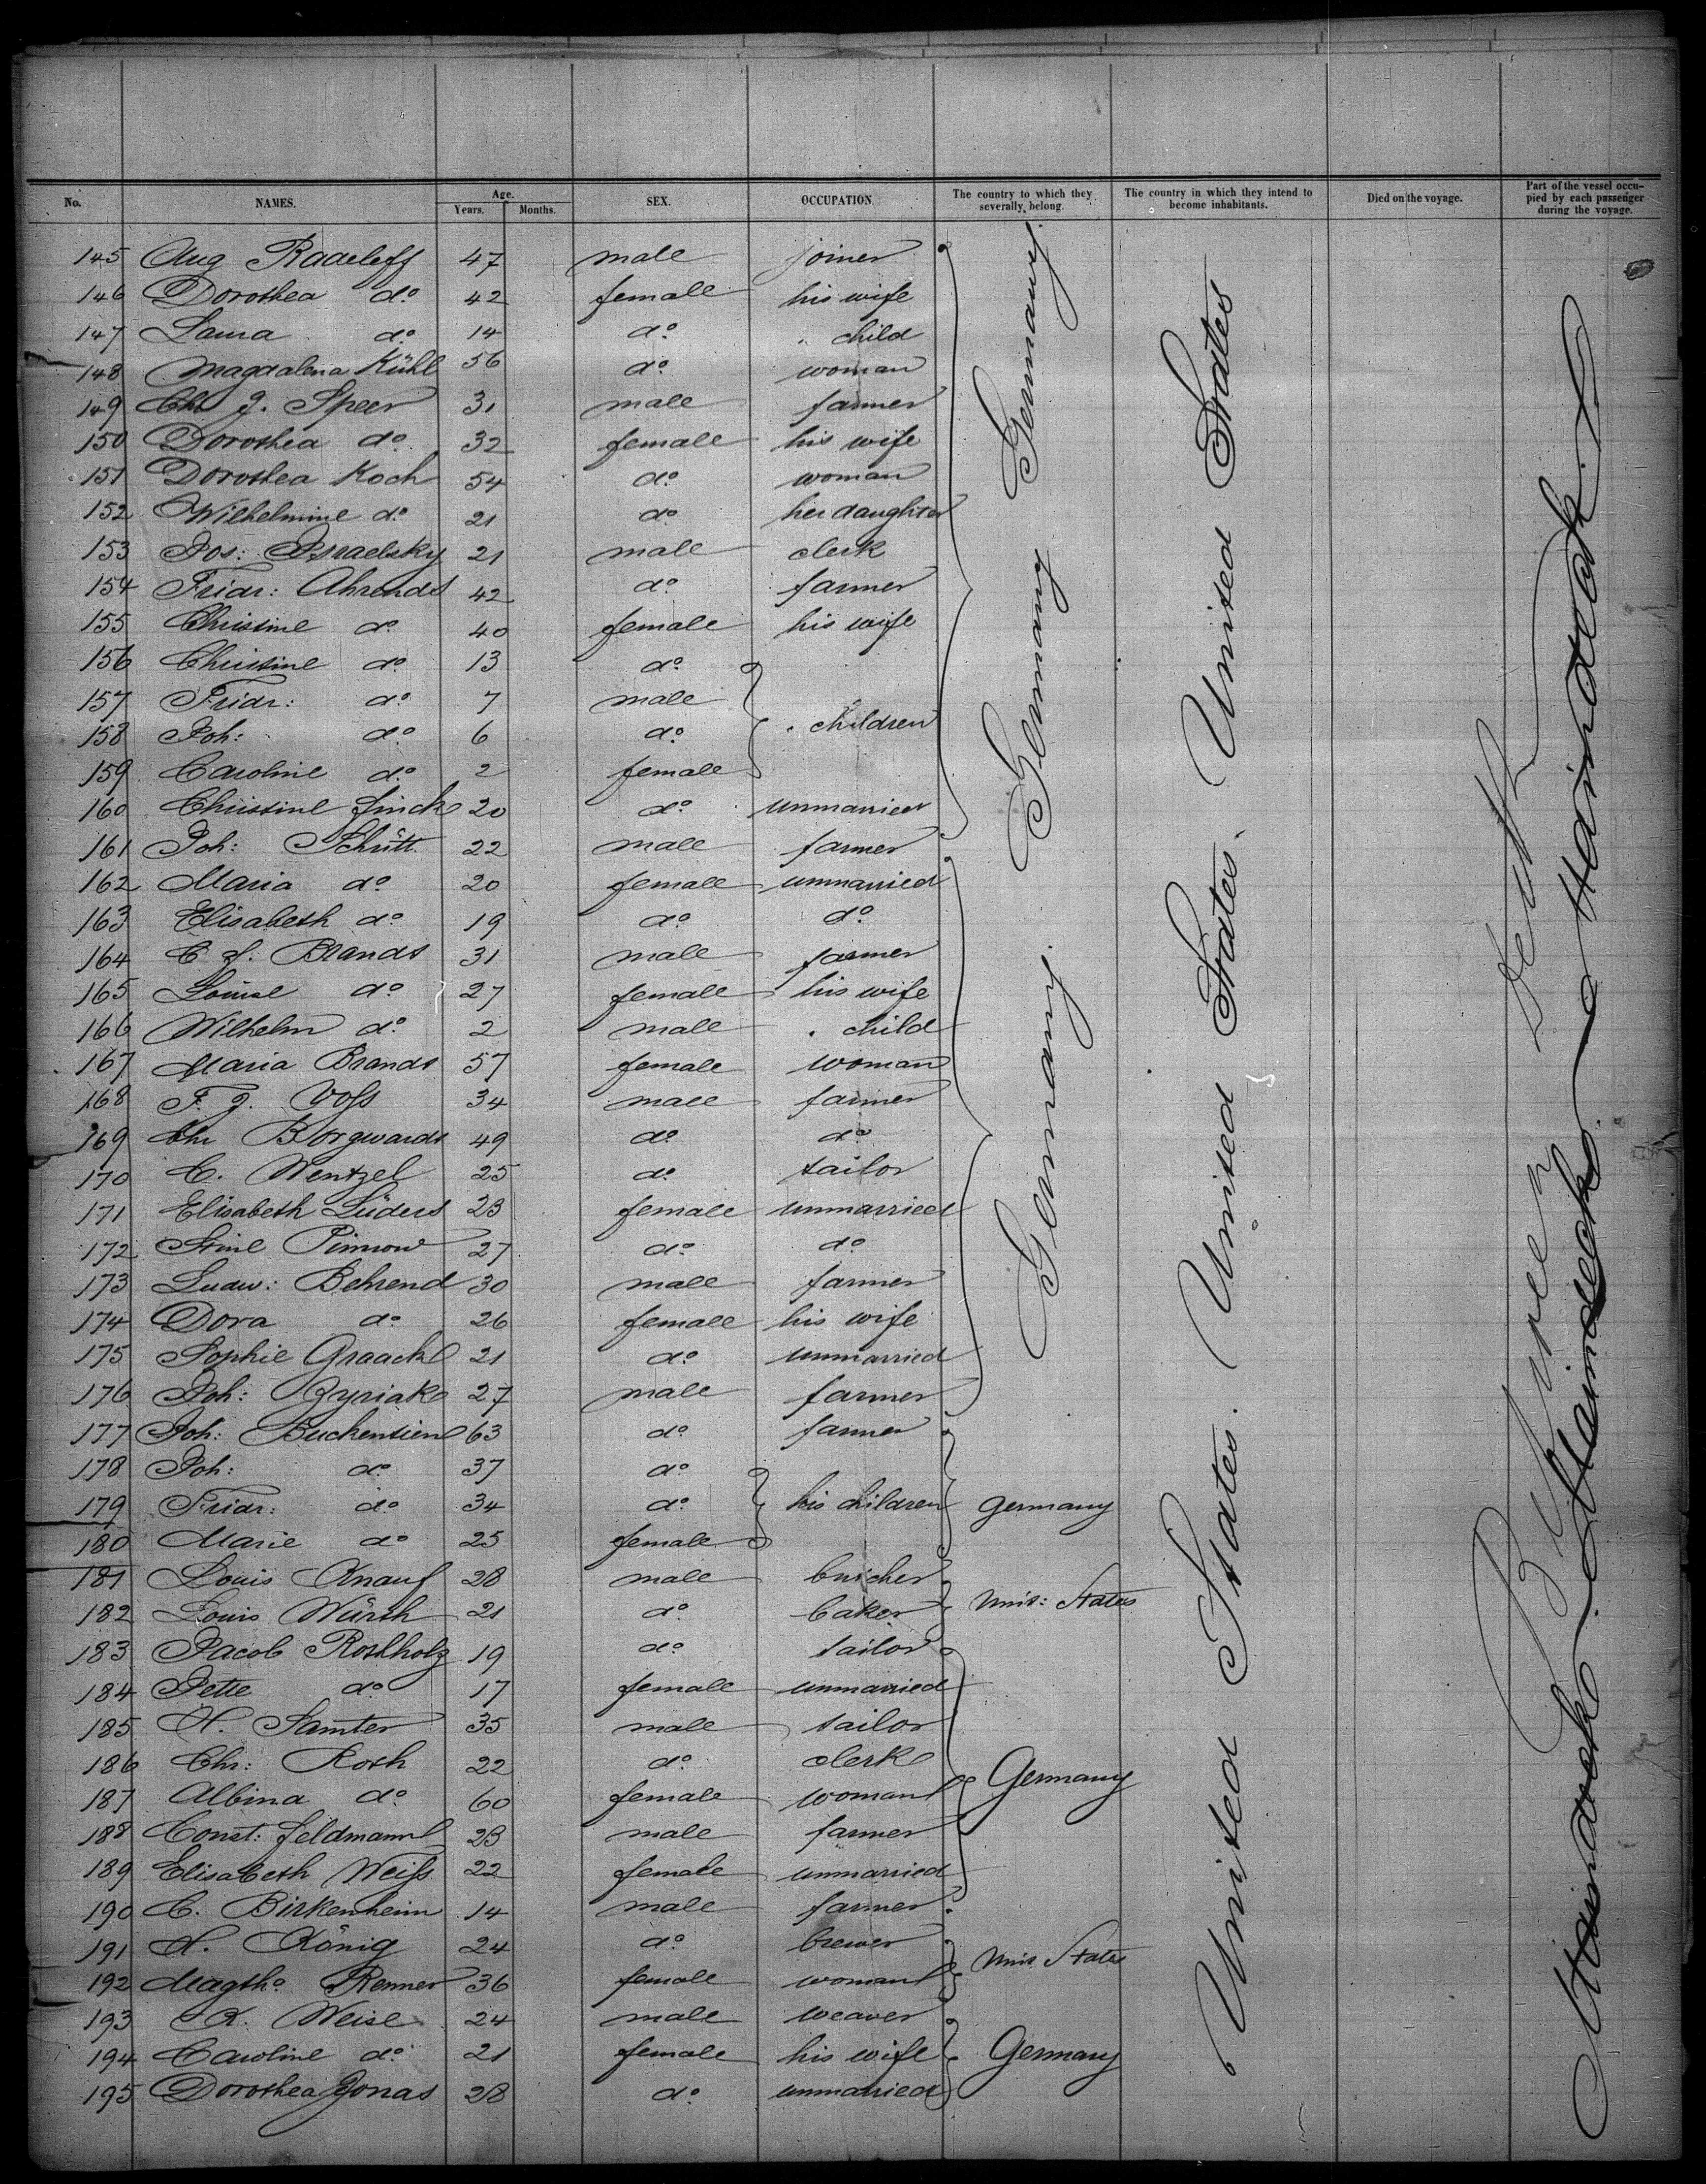 No. NAMES. Age. Years. Months. SEX. OCCUPATION. The country to which they severally belong. The country in which they intend to become inhabitants. Died on the voyage. Part of the vessel occupied by each passenger during the voyage.
145 Aug Radeleff 47 male joiner
146 Dorothea do 42 female his wife
147 Laura do 14 do child
148 Magdalena Kühl 56 do woman
149 Chr J. Speer 31 male farmer
150 Dorothea do 32 female his wife
151 Dorothea Koch 54 do woman
152 Wilhelmine do 21 do her daughter
153 Jos: Israelsky 21 male clerk
154 Fridr: Ahrends 42 do farmer
155 Christine do 40 female his wife
156 Christine do 13 do
157 Fridr: do 7 male
158 Joh: do 6 do children
159 Caroline do 2 female
160 Christine Finck 20 do unmarried
161 Joh: Schütt 22 male farmer
162 Maria do 20 female unmarried
163 Elisabeth do 19 do do
164 C J. Brands 31 male farmer
165 Louise do 27 female his wife
166 Wilhelm do 2 male child
167 Maria Brands 57 female woman
168 F. J. Voss 34 male farmer
169 Chr Borgwards 49 do do
170 C. Wentzel 25 do tailor
171 Elisabeth Lüders 23 female unmarried
172 Stine Pinnow 27 do do
173 Ludw: Behrend 30 male farmer
174 Dora do 26 female his wife
175 Sophie Graack 21 do unmarried
176 Joh: Zyriak 27 male farmer
177 Joh: Buchentien 63 do farmer
178 Joh: do 37 do
179 Fridr: do 34 do his children Germany
180 Marie do 25 female
181 Louis Knauf 28 male butcher
182 Louis Würth 21 do baker Unit: States
183 Jacob Rothholz 19 do tailor
184 Jette do 17 female unmarried
185 H. Samter 35 male tailor
186 Chr: Roth 22 do clerk
187 Albina do 60 female woman Germany
188 Const: Feldmann 23 male farmer
189 Elisabeth Weiss 22 female unmarried
190 C. Birkenheim 14 male farmer
191 H. König 24 do brewer
192 Magth: Renner 36 female woman Unit States
193 R. Weise 24 male weaver
194 Caroline do 21 female his wife Germany
195 Dorothea Jonas 28 do unmarried
Germany Germany Germany
United States. United States. United States